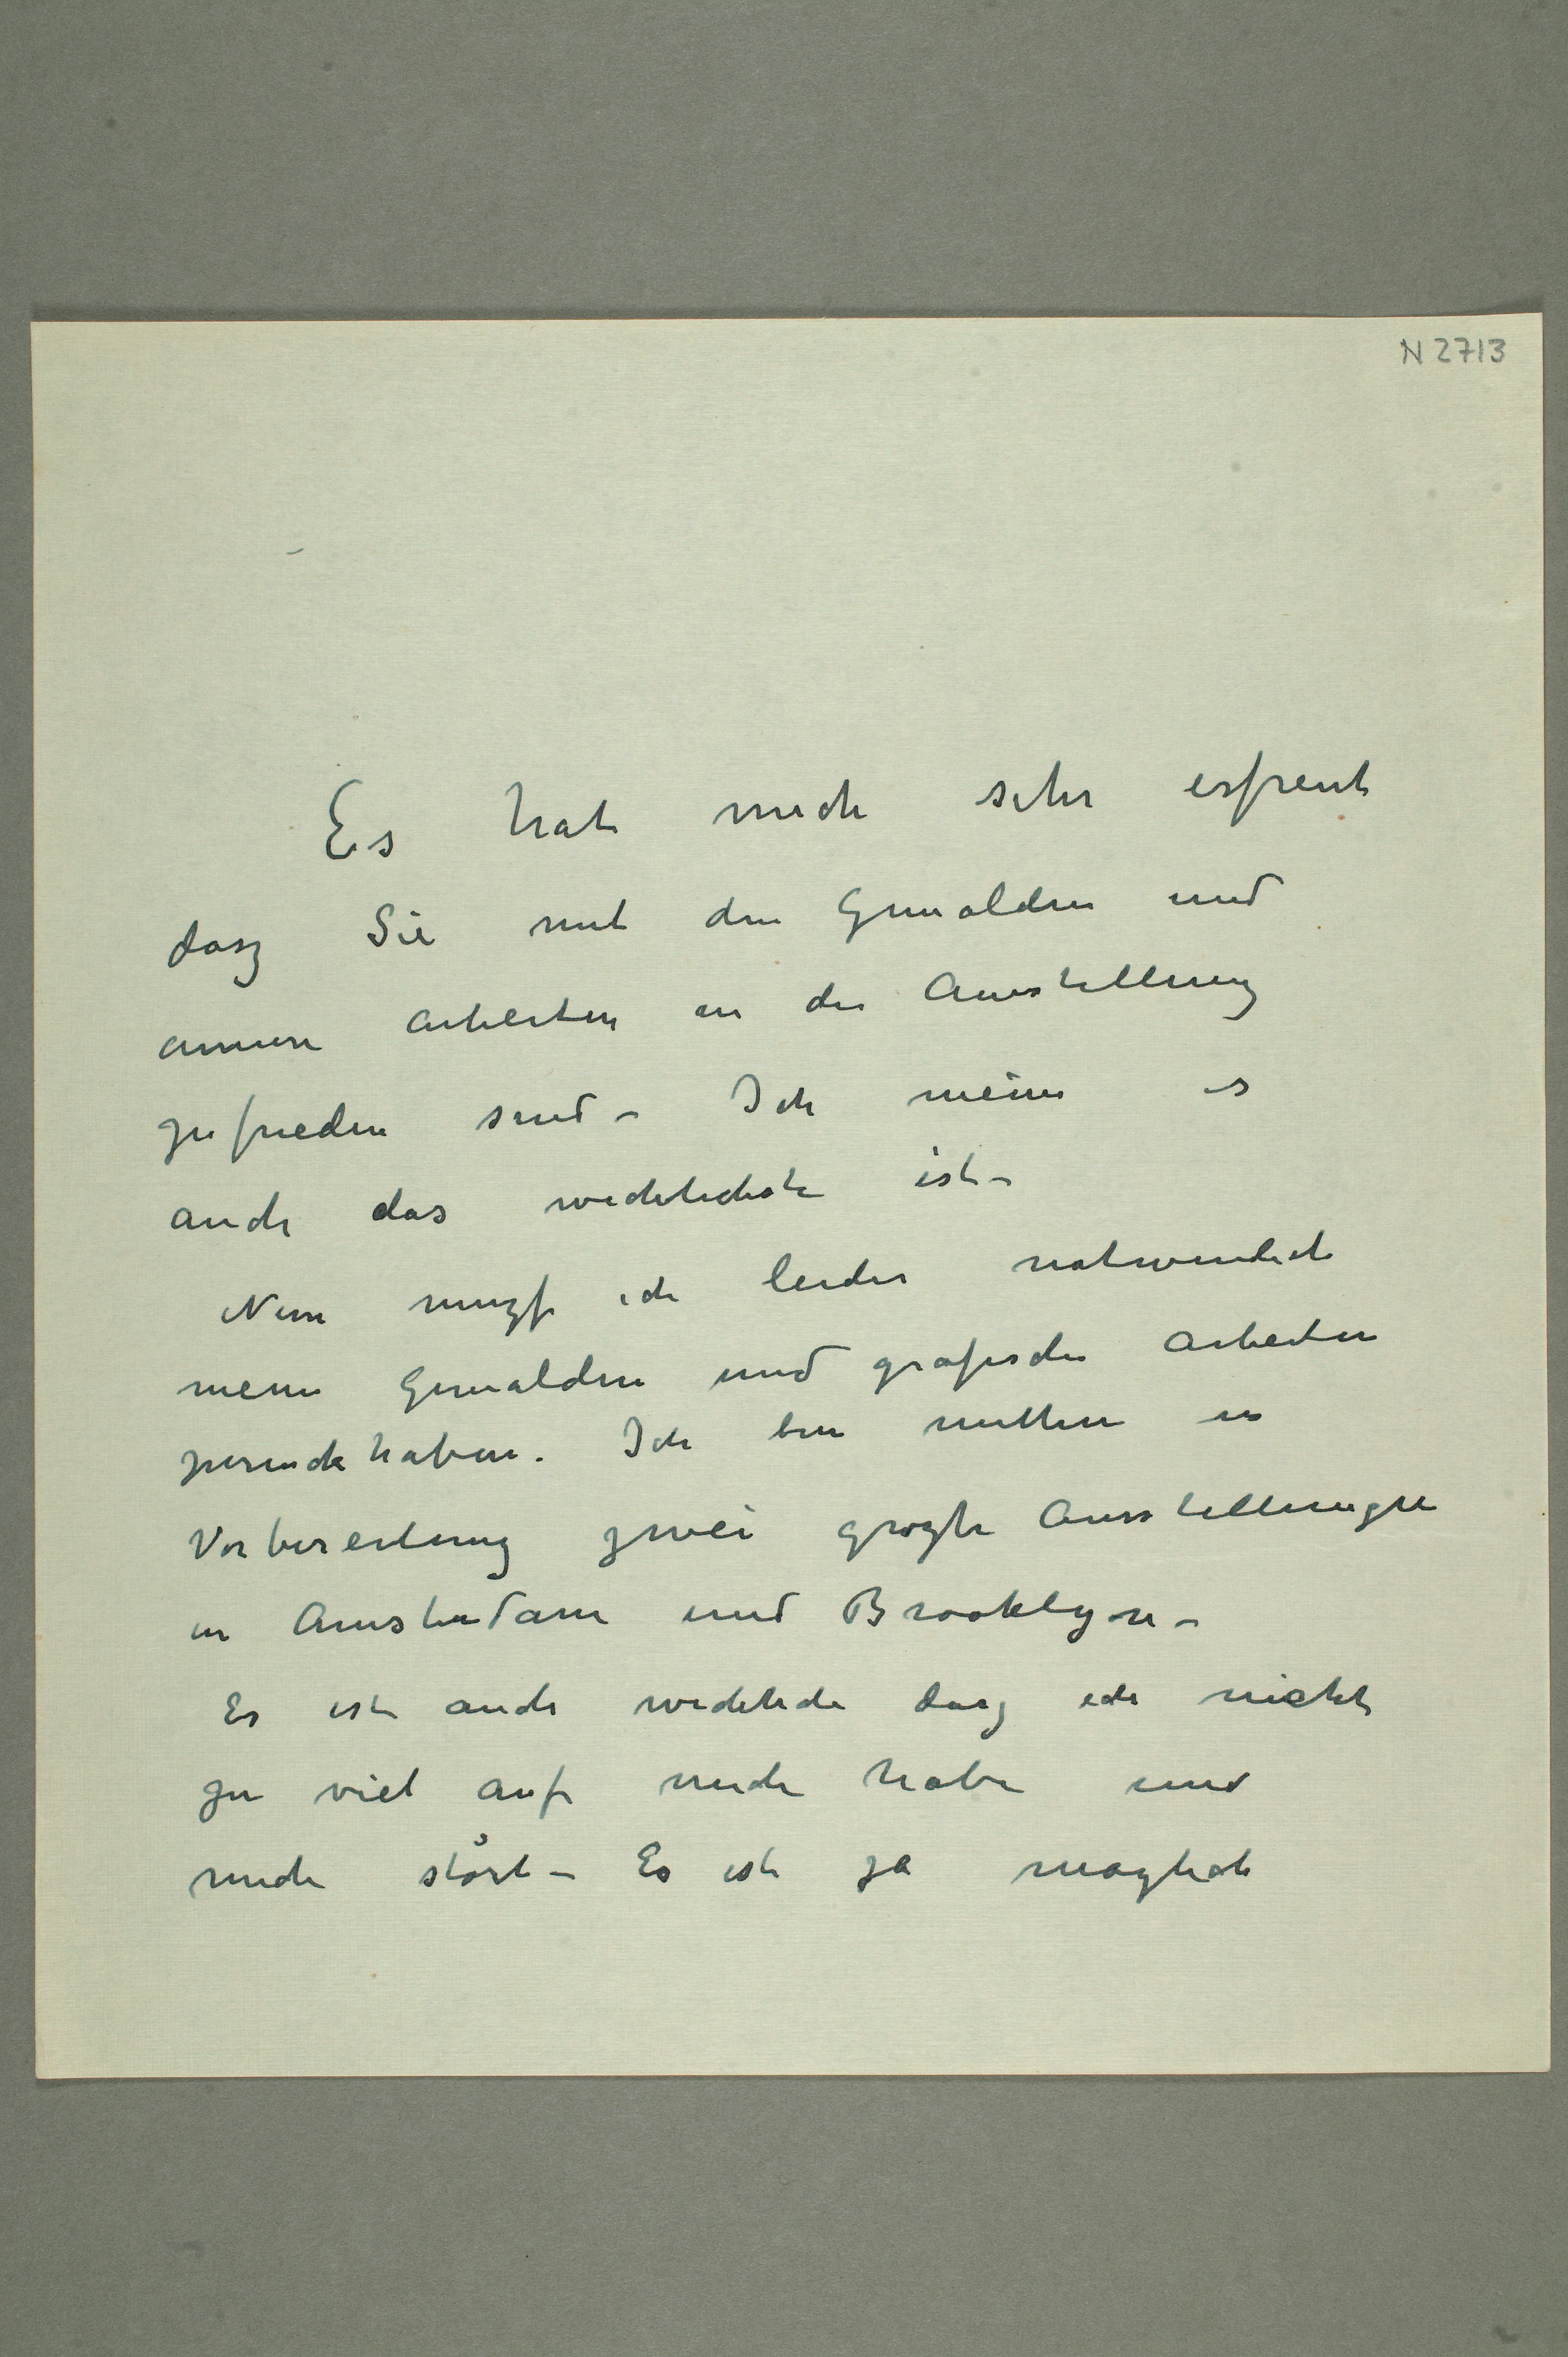 N 2713
Es hat mich sehr erfreut
dasz Sie mit den Gemälden und
Arbeiten in der Ausstellung
zufrieden sind – Ich meine es
auch das wichtichste ist –
Nun muszt ich leider notwendich
meine Gemälden und grafische Arbeiten
zurück haben. Ich bin mitten in
Vorbereitung zwei groszte Ausstellungen
in Amsterdam und Brooklyn –
Es ist auch wichtich dasz ich nicht
zu viel auf mich habe und
mich stört – Es ist ja moglich